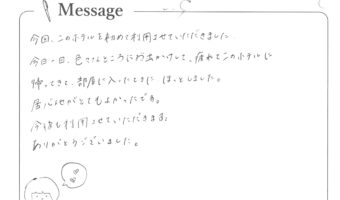 Message
今回、このホテルを初めて利用させていただきました。
今日一日、色々なところにお出かけして、疲れてこのホテルに
帰ってきて、部屋に入ったときに ほっとしました。
居心地がとてもよかったです。
今後も利用させていただきます。
ありがとうございました。